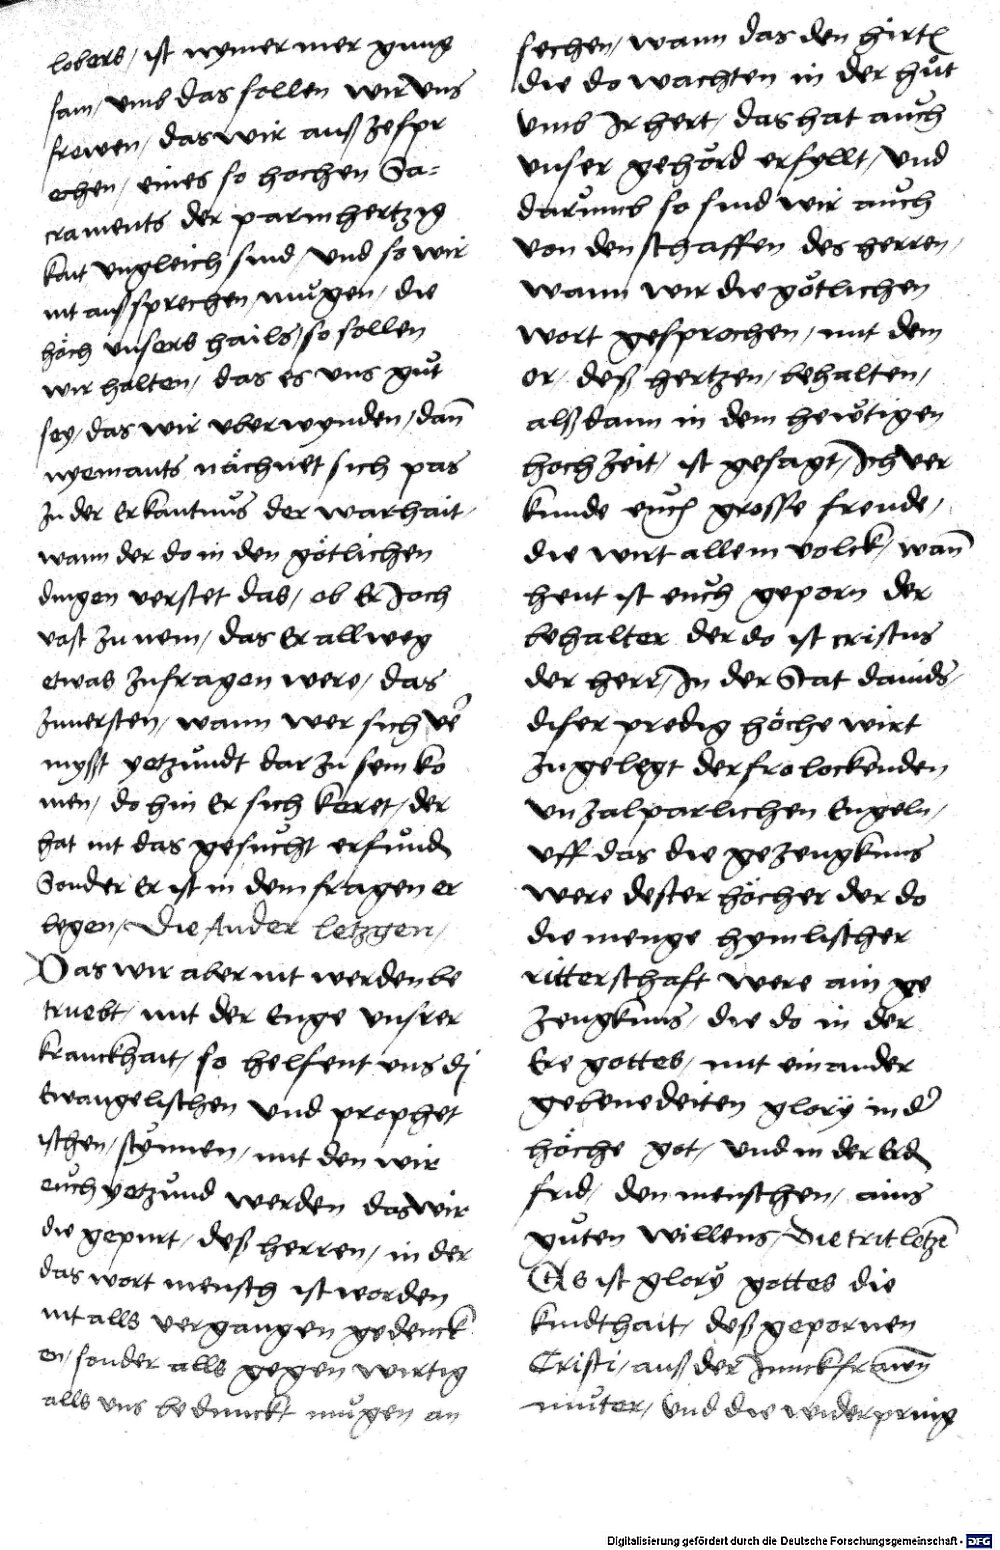 lobers / ist nymermer genug
sam / umb das sollen wir uns
frewen / das wir auß zespr
echen / eines so hochen Sa=
craments der parmhertzig
kait ungleich sind / und so wir
nit aussprechen / mu̇gen / die
höch unsers hails / so sollen
wir halten / das es uns gůt
sey / das wir uberwynden / dañ
nyemants nächnet sich pas
zu der Erkantnůs der warhait /
wann der do in den götlichen
dingen verstet das / ob Er Joch
vast zu nem / das Er allweg
etwas zufragen were / das
Innersten / wann wer sich ver̃
mysst yetzůndt dar zu sein ko
men / do hin Er sich keret / der
hat nit das gesůcht erfůnden
Sonder Er ist in dem fragen er
legen / Die Ander letzgen /
Das wir aber nit werden be
truebt / mit der Enge unsrer
kranckhait / so helfent uns dj
Ewangelischen und prophet
ischen / stymen / mit den wir
eůch yetzůnd werden das wir
die gepurt / deß herren / in der
das wort mensch ist worden
nit alls vergangen gedenck
en / sonder alls gegen wirtig
alls uns bedunckt mu̇gen an
sechen / wann das den hirten
die do wachten in der hůt
umb Ir hert / das hat aůch
unser gehörd erfyllt / und
darůmb so sind wir aůch
von den schaffen des herren /
wann wir die götlichen
wort gesprochen / mit dem
or / deß hertzen / behalten /
alß dann in dem hewtigen
hochzeit / ist gesagt / Ich ver
kunde eůch grosse freude /
die wirt allem volck / wañ
heut ist eůch geporn der
behalter der do ist cristus
der herr / In der Stat dauids /
diser predig höche wirt
zugelegt der frolockenden
unzalparlichen Engeln /
uff das die gezeugknus
were dester höcher der do
die menge hymlischer
ritterschaft were ain ge
zeugknus / die do in der
Ere gottes / mit einander
gebenedeiten glory in der
höche got / und in der Erden
frid / den menschen / ains
gůten willens / Die trit letzẽ
Es ist glory gottes die
kindthait / deß gepornen
Cristi / auß der Junckfrawen
můter / und die widerpring